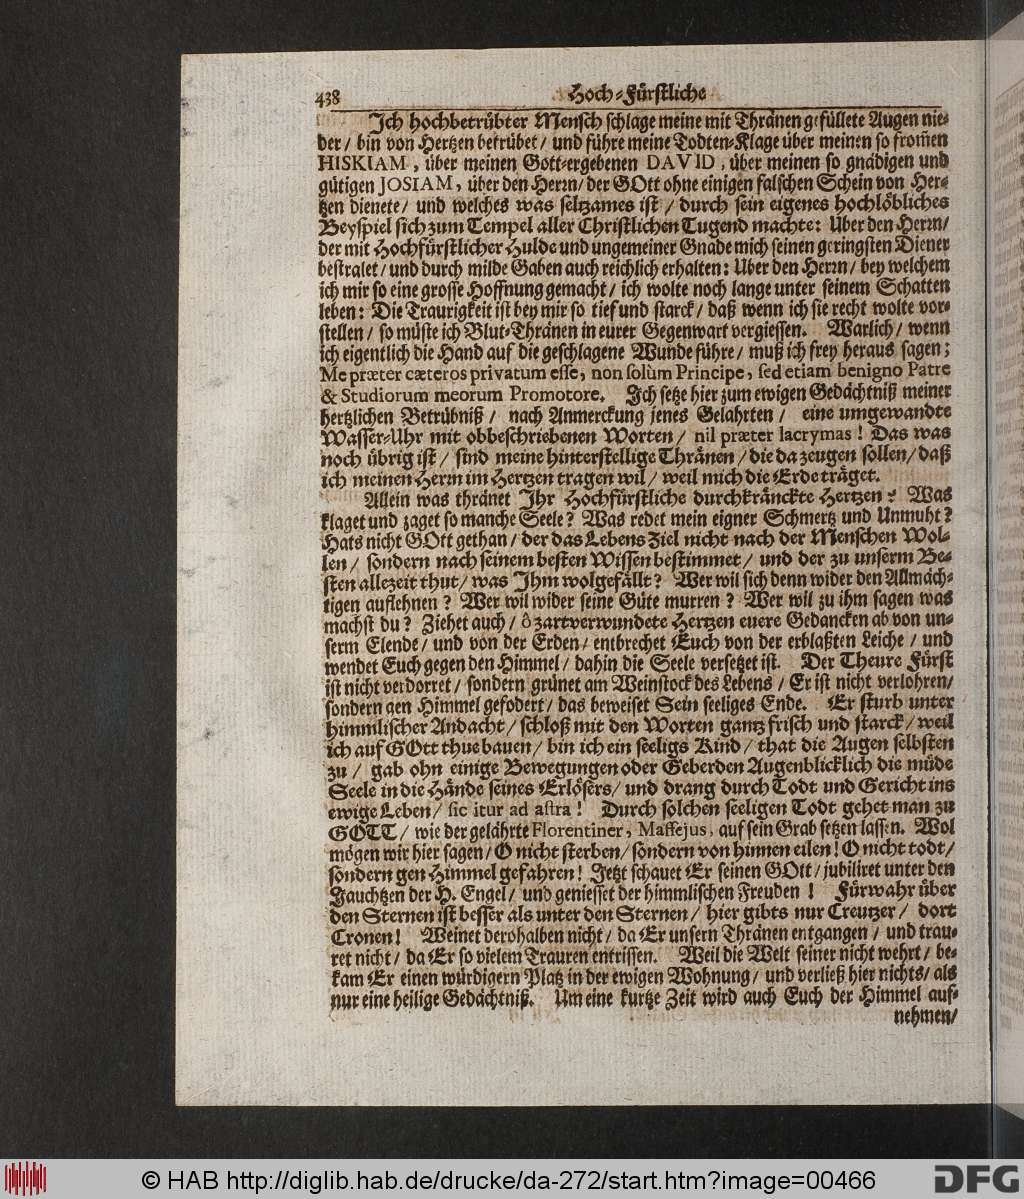 438 Hoch-Fürstliche
Ich hochbetrübter Mensch schlage meine mit Thränen gefüllete Augen nie-
der / bin von Hertzen betrübet / und führe meine Todten-Klage über meinen so from̃en
HISKIAM, über meinen Gott-ergebenen DAVID, über meinen so gnädigen und
gütigen JOSIAM, über den Herrn / der GOtt ohne einigen falschen Schein von Her-
tzen dienete / und welches was seltzames ist / durch sein eigenes hochlöbliches
Beyspiel sich zum Tempel aller Christlichen Tugend machte: Uber den Herrn /
der mit Hochfürstlicher Hulde und ungemeiner Gnade mich seinen geringsten Diener
bestralet / und durch milde Gaben auch reichlich erhalten: Uber den Herrn / bey welchem
ich mir so eine grosse Hoffnung gemacht / ich wolte noch lange unter seinem Schatten
leben: Die Traurigkeit ist bey mir so tief und starck / daß wenn ich sie recht wolte vor-
stellen / so müste ich Blut-Thränen in eurer Gegenwart vergiessen. Warlich / wenn
ich eigentlich die Hand auf die geschlagene Wunde führe / muß ich frey heraus sagen;
Me præter cæteros privatum esse, non solùm Principe, sed etiam benigno Patre
& Studiorum meorum Promotore. Ich setze hier zum ewigen Gedächtniß meiner
hertzlichen Betrübniß / nach Anmerckung jenes Gelahrten / eine umgewandte
Wasser-Uhr mit obbeschriebenen Worten / nil præter lacrymas! Das was
noch übrig ist / sind meine hinterstellige Thränen / die da zeugen sollen / daß
ich meinen Herrn im Hertzen tragen wil / weil mich die Erde träget.
Allein was thränet Ihr Hochfürstliche durchkränckte Hertzen? Was
klaget und zaget so manche Seele? Was redet mein eigner Schmertz und Unmuht?
Hats nicht GOtt gethan / der das Lebens Ziel nicht nach der Menschen Wol-
len / sondern nach seinem besten Wissen bestimmet / und der zu unserm Be-
sten allezeit thut / was Ihm wolgefällt? Wer wil sich denn wider den Allmäch-
tigen auflehnen? Wer wil wider seine Güte murren? Wer wil zu ihm sagen was
machst du? Ziehet auch / ô zartverwundete Hertzen euere Gedancken ab von un-
serm Elende / und von der Erden / entbrechet Euch von der erblaßten Leiche / und
wendet Euch gegen den Himmel / dahin die Seele versetzet ist. Der Theure Fürst
ist nicht verdorret / sondern grünet am Weinstock des Lebens / Er ist nicht verlohren /
sondern gen Himmel gefodert / das beweiset Sein seeliges Ende. Er sturb unter
himmlischer Andacht / schloß mit den Worten gantz frisch und starck / weil
ich auf GOtt thue bauen / bin ich ein seeligs Kind / that die Augen selbsten
zu / gab ohn einige Bewegungen oder Geberden Augenblicklich die müde
Seele in die Hände seines Erlösers / und drang durch Todt und Gericht ins
ewige Leben / sic itur ad astra! Durch solchen seeligen Todt gehet man zu
GOTT / wie der gelährte Florentiner, Massejus, auf sein Grab setzen lassen. Wol
mögen wir hier sagen / O nicht sterben / sondern von hinnen eilen! O nicht todt /
sondern gen Himmel gefahren! Jetzt schauet Er seinen GOtt / jubiliret unter den
Jauchtzen der H. Engel / und geniesset der himmlischen Freuden! Fürwahr über
den Sternen ist besser als unter den Sternen / hier gibts nur Creutzer / dort
Cronen! Weinet derohalben nicht / da Er unsern Thränen entgangen / und trau-
ret nicht / da Er so vielem Trauren entrissen. Weil die Welt seiner nicht wehrt / be-
kam Er einen würdigern Platz in der ewigen Wohnung / und verließ hier nichts / als
nur eine heilige Gedächtniß. Um eine kurtze Zeit wird auch Euch der Himmel auf-
nehmen /
© HAB http://diglib.hab.de/drucke/da-272/start.htm?image=00466 DFG